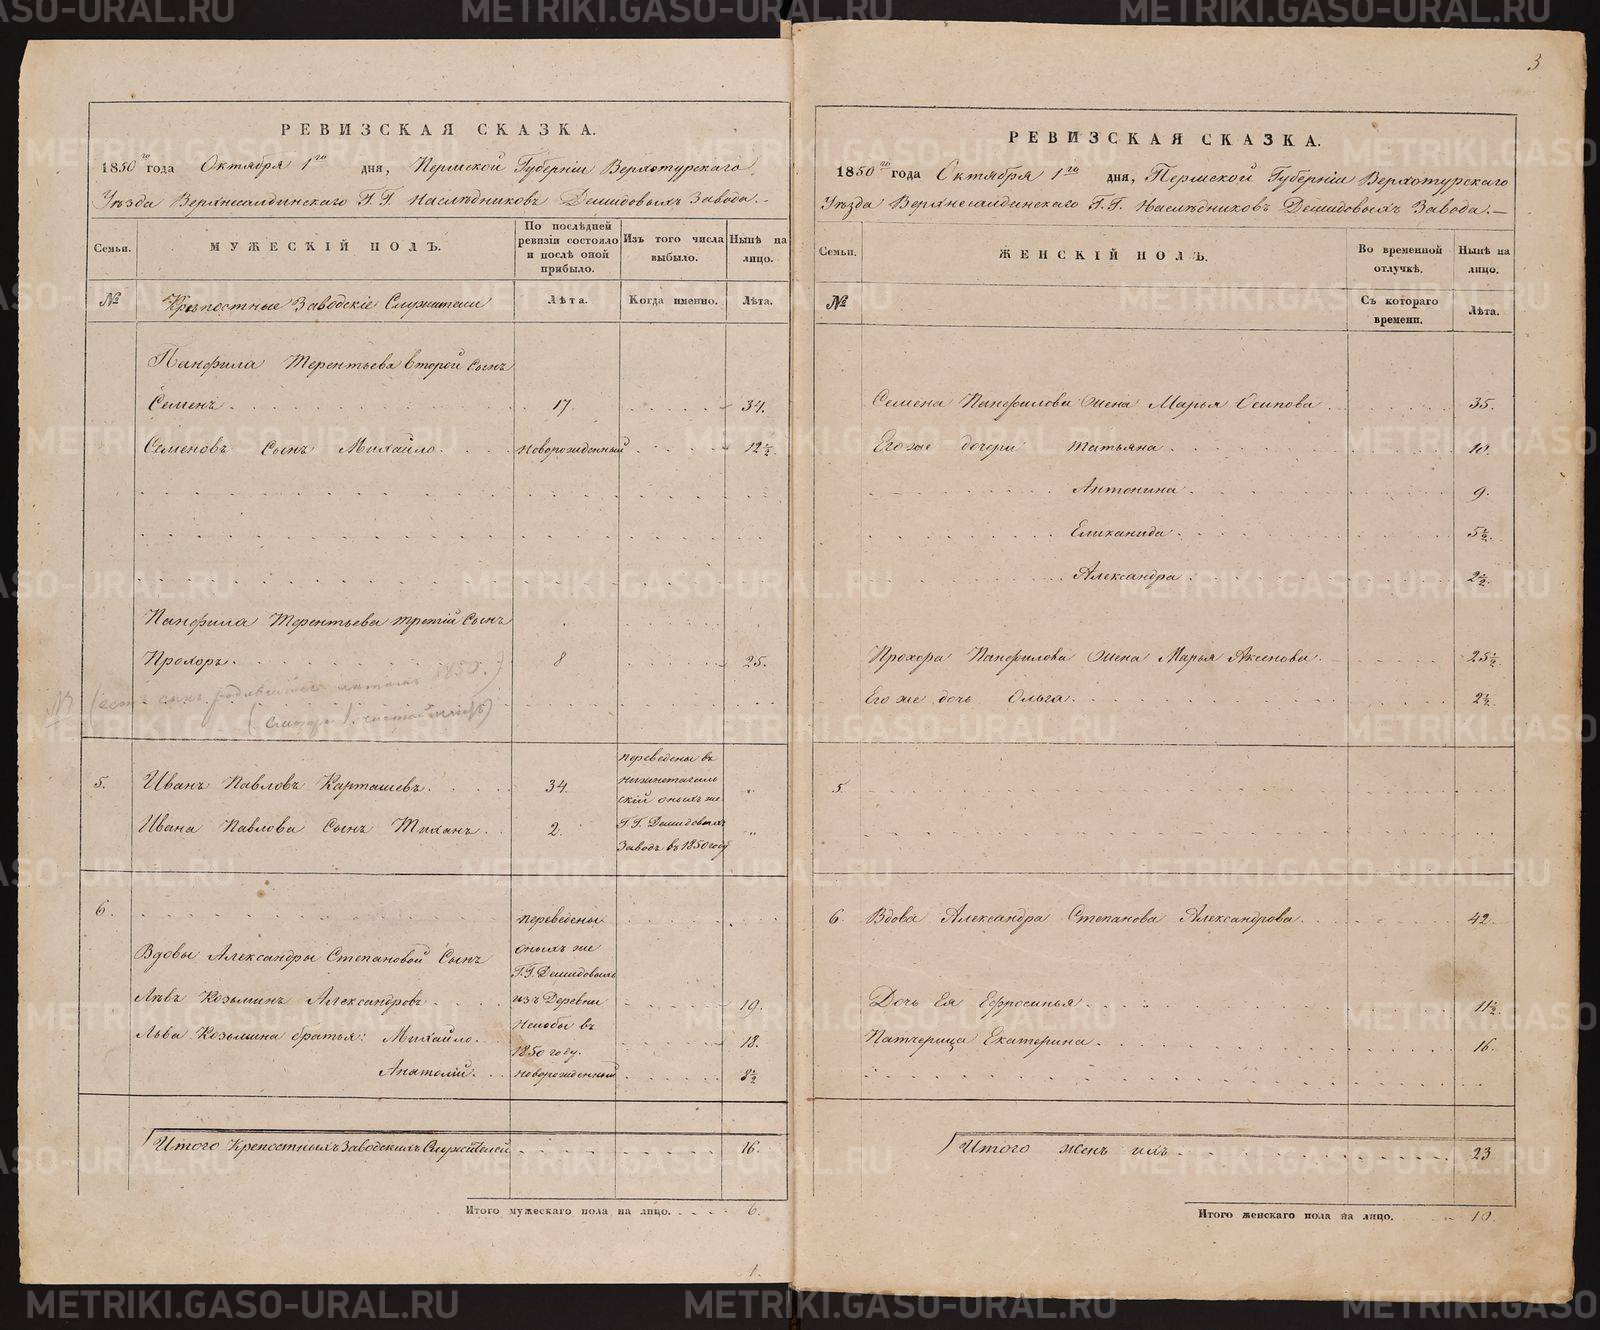 РЕВИЗСКАЯ СКАЗКА.
1850го года Октября 1го дня, Пермской Губерніи Верхотурскаго
Уѣзда Верхнесалдинскаго Г.Г. Наслѣдниковъ Демидовыхъ Завода.
Семьи.
МУЖЕСКІЙ ПОЛЪ.
По послѣдней ревизіи состояло и послѣ оной прибыло.
Изъ того числа выбыло.
Нынѣ на лицо.
№
Крѣпостные Заводскіе Служители
Лѣта.
Когда именно.
Лѣта.
Панфила Терентьева второй сынъ
Семенъ. 17. 34.
Семеновъ сынъ Михайло. новорожденный 12½.
Панфила Терентьева третій сынъ
Прохоръ. 8 25.
(есть сынъ родившійся 1850.)
5. Иванъ Павловъ Карташевъ. 34.
Ивана Павлова сынъ Тиханъ. 2.
переведены въ
Нижнетагиль
скій оныхъ же
Г.Г. Демидовыхъ
Заводъ въ 1850 году
6. переведены
Вдовы Александры Степановой сынъ оныхъ же
Г.Г. Демидовыхъ
Левъ Козьминъ Александровъ. изъ Деревни 19.
Льва Козьмина братья: Михайло. Нелобы въ 18.
1850 году.
Анатолій. новорожденный 8½
Итого Крепостныхъ Заводскихъ Служителей 16.
Итого мужескаго пола на лицо. 6.
1.
3
РЕВИЗСКАЯ СКАЗКА.
1850го года Октября 1го дня, Пермской Губерніи Верхотурскаго
Уѣзда Верхнесалдинскаго Г.Г. Наслѣдниковъ Демидовыхъ Завода.
Семьи.
ЖЕНСКІЙ ПОЛЪ.
Во временной отлучкѣ.
Нынѣ на лицо.
№
Съ котораго времени.
Лѣта.
Семена Панфилова жена Марья Осипова 35.
Его же дочери Татьяна. 10.
Антонина. 9.
Еликанида. 5½.
Александра. 2½.
Прохора Панфилова жена Марья Аксенова. 25½.
Его же дочь Ольга. 2½.
5.
6. Вдова Александра Степанова Александрова. 42.
Дочь Ея Ефросинья. 11½.
Патчерица Екатерина. 16.
Итого женъ ихъ. 23
Итого женскаго пола на лицо. 10.
METRIKI.GASO-URAL.RU